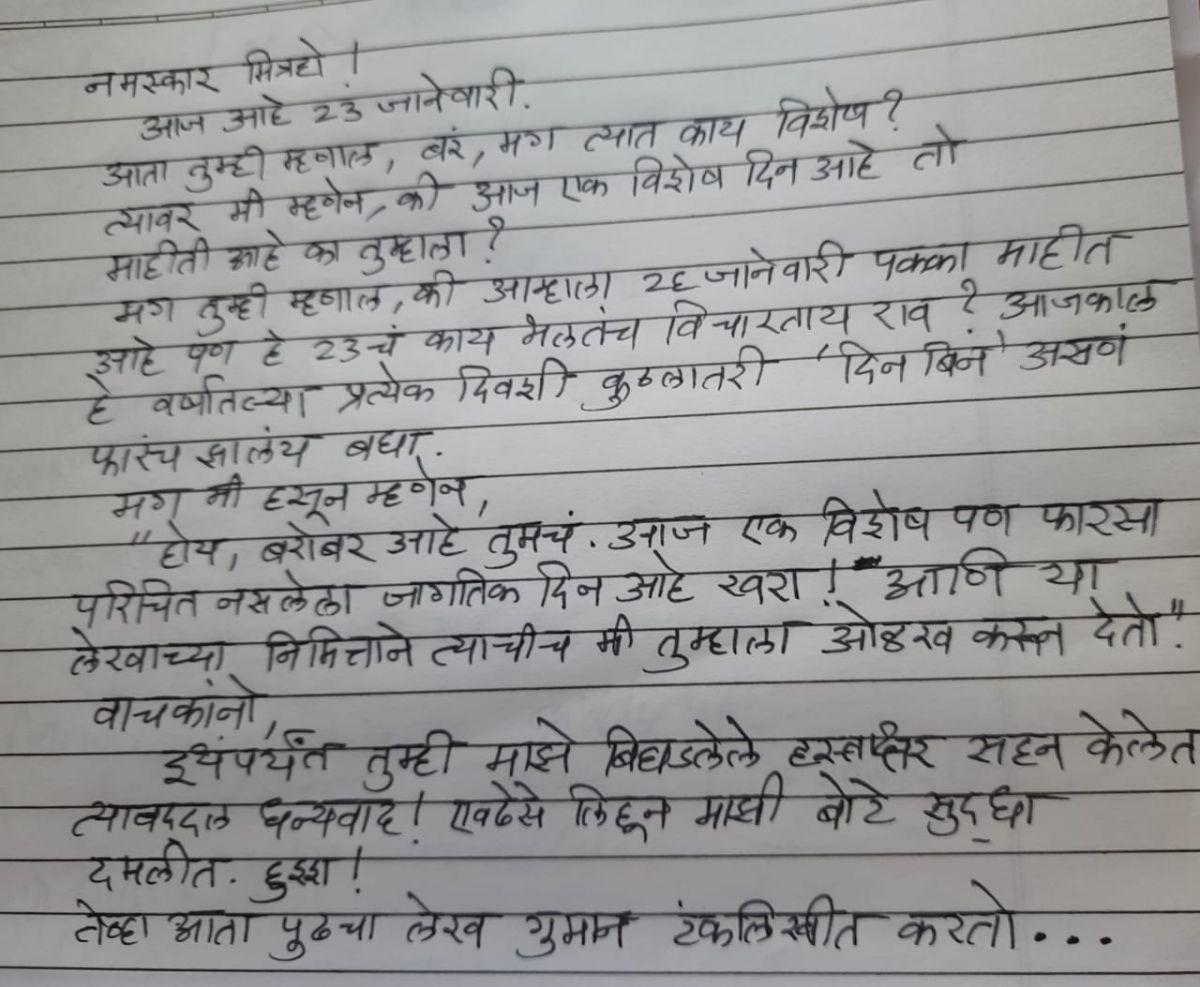 नमस्कार मित्रहो !
आज आहे 23 जानेवारी.
आता तुम्ही म्हणाल, बरं, मग त्यात काय विशेष?
त्यावर मी म्हणेन, की आज एक विशेष दिन आहे तो
माहीती आहे का तुम्हाला?
मग तुम्ही म्हणाल, की आम्हाला २६ जानेवारी पक्का माहीत
आहे पण हे 23चं काय भेलतंच विचारताय राव ? आजकाल
हे वर्षातल्या प्रत्येक दिवशी कुठलातरी 'दिन बिन' असणं
फारंच झालंय बघा.
मग मी हसून म्हणेन,
"होय, बरोबर आहे तुमचं. आज एक विशेष पण फारसा
परिचित नसलेला जागतिक दिन आहे खरा! आणि या
लेखाच्या निमित्ताने त्याचीच मी तुम्हाला ओळख करून देतो".
वाचकांनो,
इथंपर्यंत तुम्ही माझे बिघडलेले हस्ताक्षर सहन केलेत
त्याबद्दल धन्यवाद! एवढेसे लिहून माझी बोटे सुद्धा
दमलीत. हुश्श!
तेव्हा आता पुढचा लेख गुमान टंकलिखीत करतो...